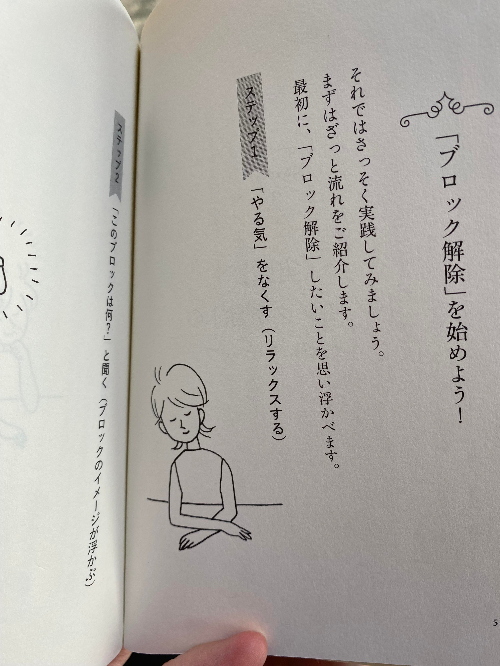 「ブロック解除」を始めよう！
それではさっそく実践してみましょう。
まずはざっと流れをご紹介します。
最初に、「ブロック解除」したいことを思い浮かべます。
ステップ1
「やる気」をなくす（リラックスする）
5
ステップ2
「このブロックは何？」と聞く（ブロックのイメージが浮かぶ）